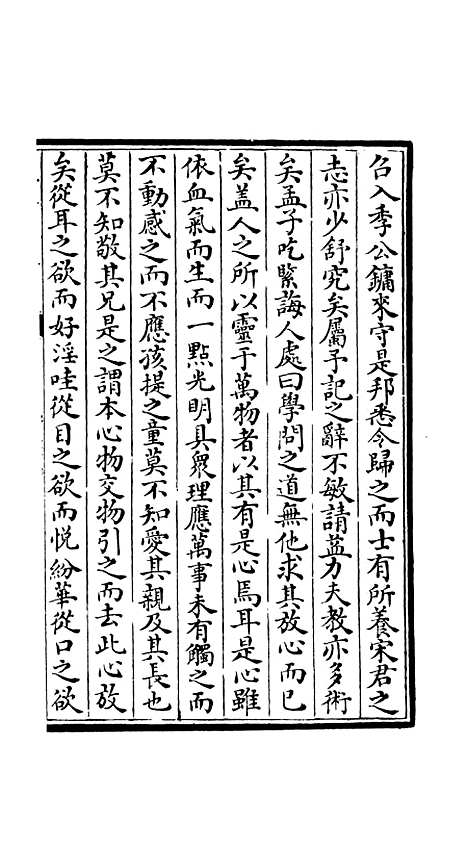 召入季公鏞來守是邦悉令歸之而士有所養宋君之
志亦少舒究矣屬予記之辭不敏請益力夫教亦多術
矣孟子吃緊誨人處曰學問之道無他求其放心而已
矣盖人之所以靈于萬物者以其有是心焉耳是心雖
依血氣而生而一點光明具衆理應萬事未有觸之而
不動感之而不應孩提之童莫不知愛其親及其長也
莫不知敬其兄是之謂本心物交物引之而去此心放
矣從耳之欲而好淫哇從目之欲而悅紛華從口之欲